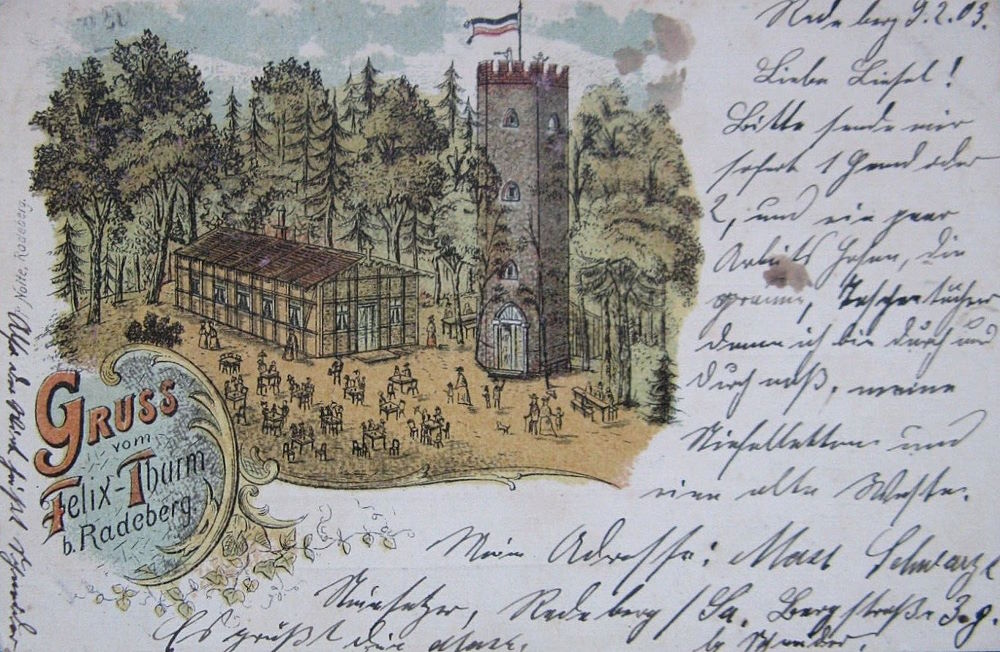 Radeberg 9.2.03.
Liebe Liesel!
Bitte sende mir
sofort 1 Hemd oder
2, und ein paar
Arbeits Hosen, die
graune, Taschentücher
denn ich bin durch und
durch naß, meine
und
eine alte Weste.
Meine Adresse: Max Schwarze
Radeberg / Sa. Bergstraße 3 g.
b.
Es grüßt dich Max.
GRUSS
vom
Felix-Thurm
b. Radeberg.
Nolte, Radeberg.